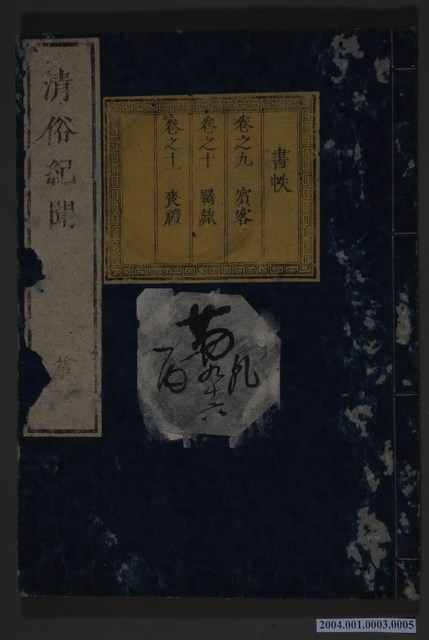 清俗紀聞
書帙
卷之九 賓客
卷之十 羇旅
卷之十一 喪禮
九
九十六
2004.001.0003.0005